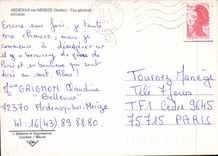 ARDENAY-sur-MERIZE (Sarthe) - Vue générale
aérienne.
Encore une fois, je tente
ma chance, mais je
commence à désespérer
il y a beaucoup de gens de
Paris et en banlieue qui sont
au Mans !
Mme GRIGNON Claudine
"Bellevue"
72370 Ardenay-sur-Merize
tel: 16(43) 89 88 80.
Tournez Manège
Télé 7 Jours
TF1 Cedex 5945
75715 PARIS